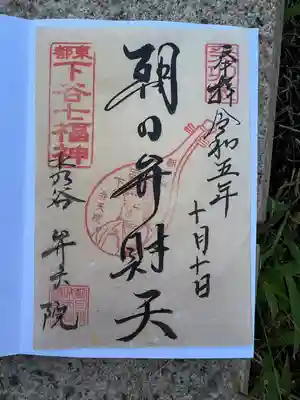 奉拝 令和五年
十月十日
朝日弁財天
東都
下谷七福神
弁天院